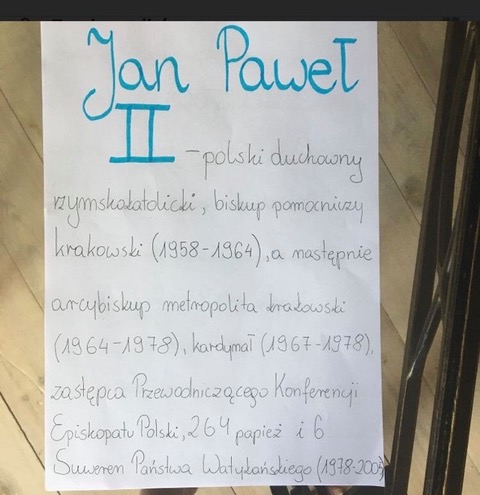 Jan Paweł
II - polski duchowny
rzymskokatolicki, biskup pomocniczy
krakowski (1958-1964), a następnie
arcybiskup metropolita krakowski
(1964-1978), kardynał (1967-1978),
zastępca Przewodniczącego Konferencji
Episkopatu Polski, 264 papież i 6
Suweren Państwa Watykańskiego (1978-2005)